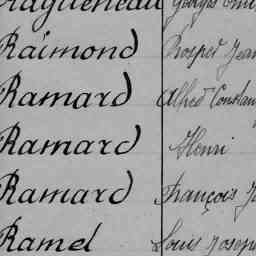 Ragueneau Georges
Raimond Prosper Jean
Ramard Alfred Constan
Ramard Henri
Ramard François
Ramel Louis Joseph